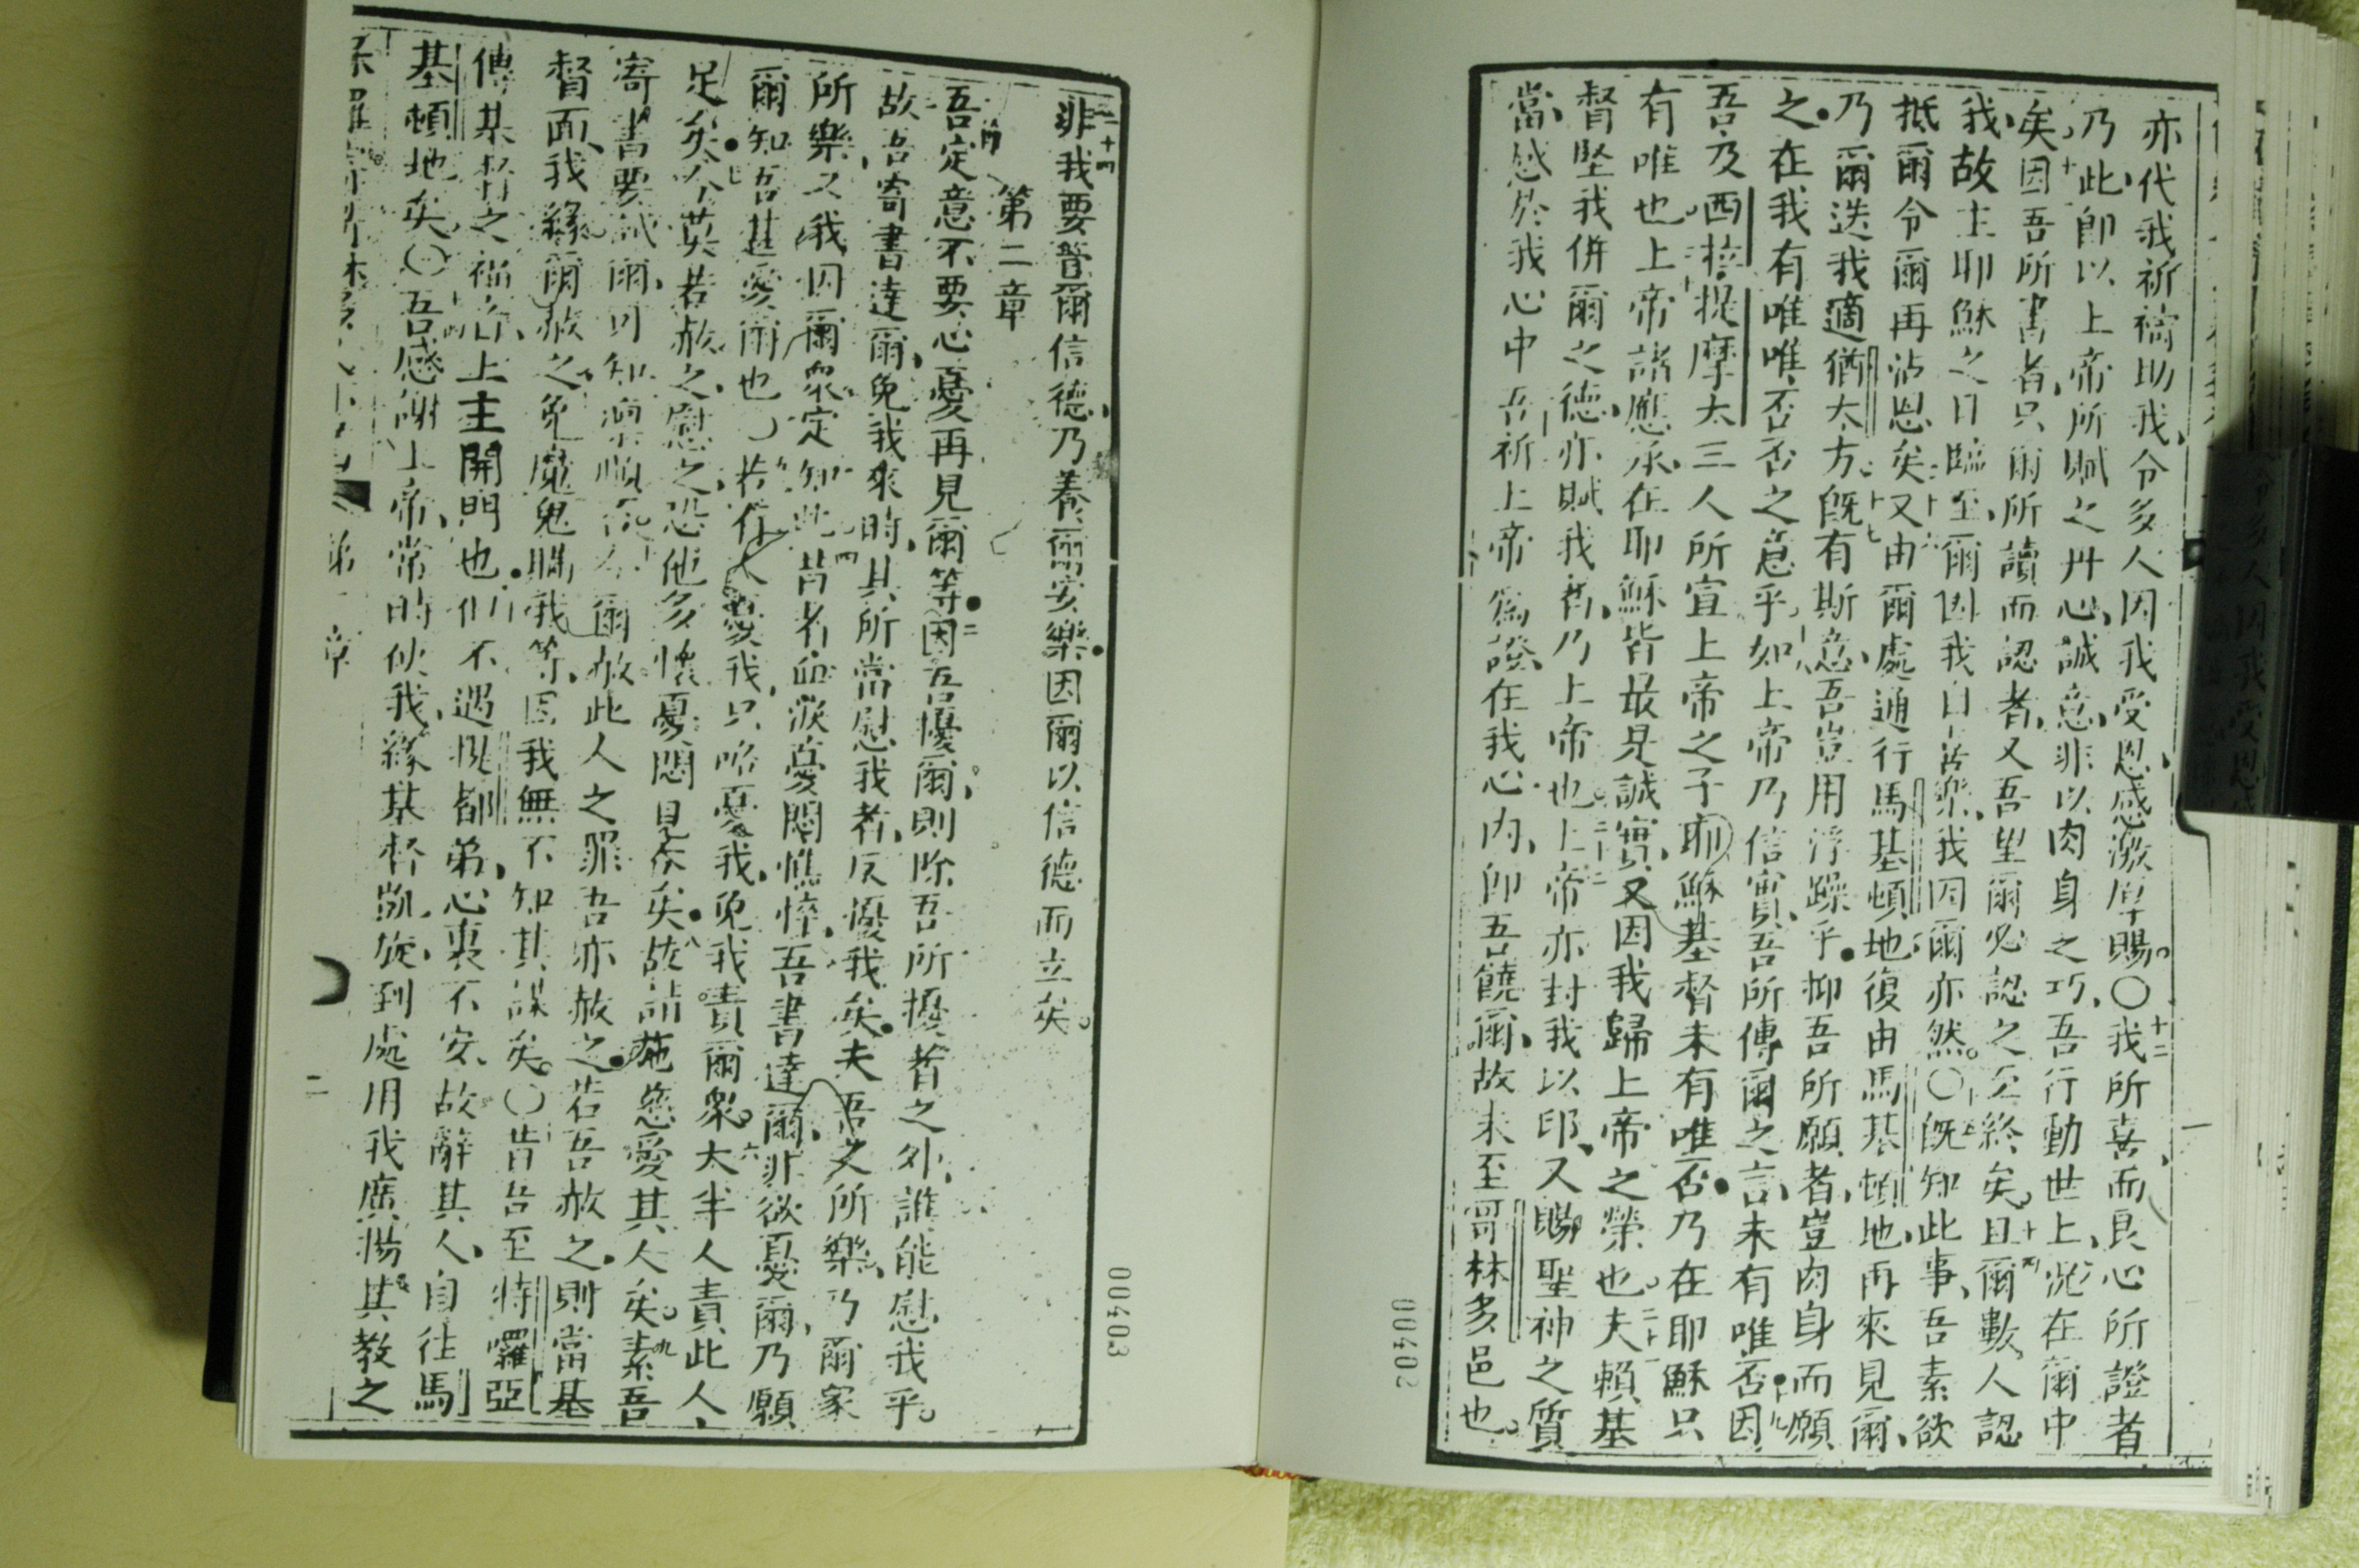 亦代我祈禱助我、令多人因我受恩、感激厚賜。〇十二我所喜、而良心所證者
乃此、即以上帝所賦之丹心、誠意、非以肉身之巧、吾行動世上、況在爾中
矣、因吾所書者、只爾所讀而認者、又吾望爾必認之至終矣。且爾數人認
我、故主耶穌之日臨至、爾因我自喜樂、我因爾亦然。〇既知此事、吾素欲
抵爾、令爾再沾恩矣、又由爾處通行馬基頓地、復由馬基頓地、再來見爾、
乃爾送我適猶太方。既有斯意、吾豈用浮躁乎。抑吾所願者、豈肉身而願
之。在我有唯唯否否之意乎。如上帝乃信實、吾所傳爾之言、未有唯否。因
吾及西拉提摩太三人所宣上帝之子耶穌基督、未有唯否。乃在耶穌只
有唯也。上帝諸應承、在耶穌皆最是誠實、又因我歸上帝之榮也。夫賴基
督堅我併爾之德、亦賦我者、乃上帝也。上帝亦封我以印、又賜聖神之質
當、感於我心中。吾祈上帝為證、在我心內、即吾饒爾、故未至哥林多邑也。
00402
二十四非我要督爾信德、乃養爾安樂。因爾以信德而立矣。
第二章
吾定意不要心憂再見爾等。二因吾擾爾、則除吾所擾者之外、誰能慰我乎。
故吾寄書達爾、免我來時、其所當慰我者、反擾我矣。夫吾之所樂、乃爾家
所樂、又我因爾衆、定知此。四昔者血淚憂悶憔悴、吾書達爾、非欲憂爾、乃願
爾知吾甚愛爾也。若有人憂我、只略憂我、免我責爾衆。六大半人責此人、
足矣。七今莫若赦之、慰之、恐他多懷憂悶見吞矣。八故請施慈愛其人矣。九素吾
寄書要試爾、可知凜順否。今爾赦此人之罪、吾亦赦之。若吾赦之、則當基
督面、我緣爾赦之、免魔鬼騙我等、因我無不知其謀矣。〇昔吾至特囉亞
傳基督之福音、上主開門也。但不遇提都弟、心裏不安、故辭其人、自往馬
基頓地矣。〇吾感謝上帝、常時使我、緣基督凱旋、到處用我廣揚其教之
第二章
二
00403